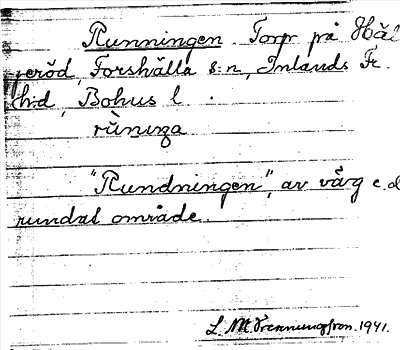 Runningen. Torp på Häl
jeröd, Forshälla s:n, Inlands Fr.
h:d, Bohus l.
"Rundningen", av väg e.d.
rundat område.
L. M. 1941.